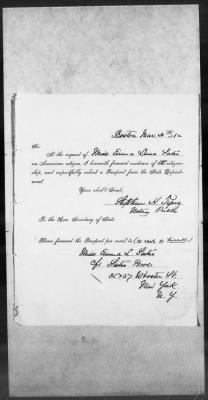 Boston Mar. 30th 1882
Sir
At the request of Miss Anna Lana
an American citizen, I herewith forward evidence of her citizen-
ship, and respectfully solicit a Passport from the State Depart-
ment.
Your obed't Serv't,
Stephen H.
Notary Public
To the Hon. Secretary of State.
Please forward the Passport per mail to
Miss Anna L.
C/o Bros
35 & 37 Wooster St.
New York
N. Y.